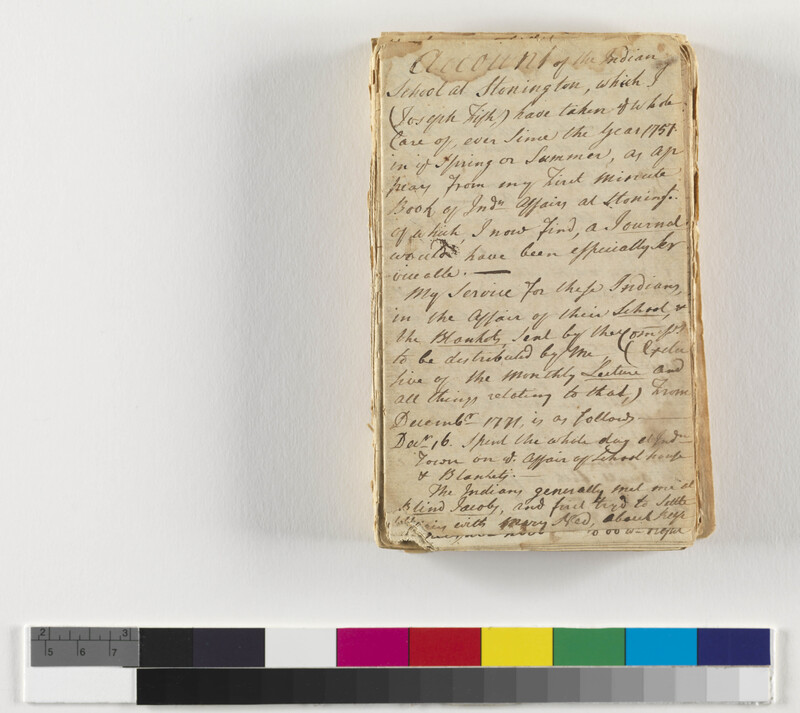 Account of the Indian
School at Stonington, which I
(Joseph Fish) have taken ye whole
Care of, ever Since the Year 1757.
in ye Spring or Summer, as ap
pears from my First Minute
Book of Indn Affairs at Stoningt.
of which, I now find, a Journal
would have been especially Ser
viceable. —
My Service for these Indians,
in the Affair of their School, &
the Blankets, Sent by the Comissrs
to be distributed by Me, (Exclu
sive of the Monthly Lecture and
all things relating to that,) From
Decembr 1771, is as Follows —
Decr 16. Spent the whole day at Indn
Town on ye Affair of School house
& Blankets. —
The Indians generally met me at
Blind Jacobs, and first try'd to Settle
with Mary Ned, about keep
2 3
5 6 7